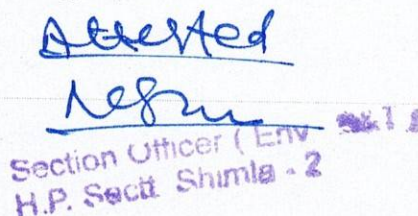 Attested
Section Officer ( Env
H.P. Sectt Shimla - 2